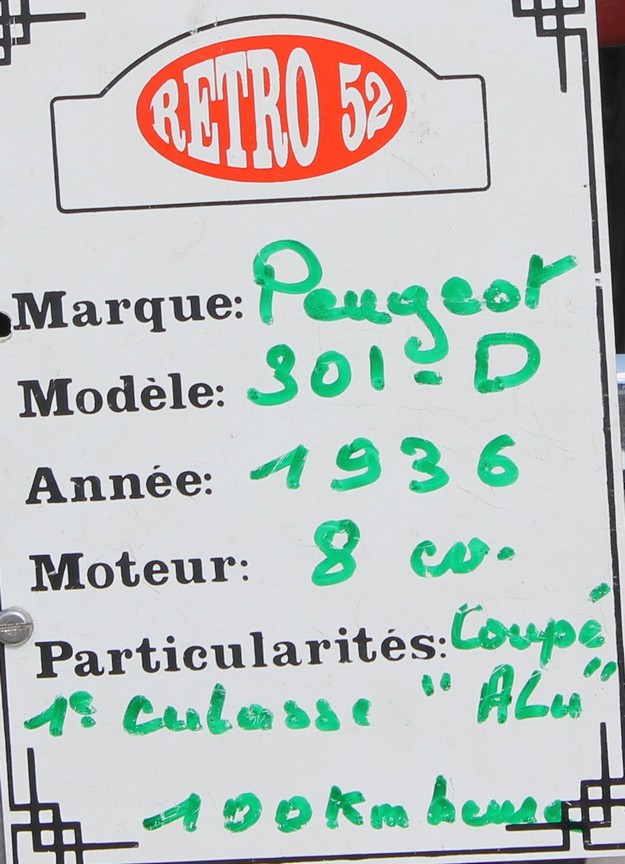 RETRO 52
Marque: Peugeot
Modèle: 301-D
Année: 1936
Moteur: 8 cv.
Particularités: Coupé
1e culasse "ALu"
100Km heure